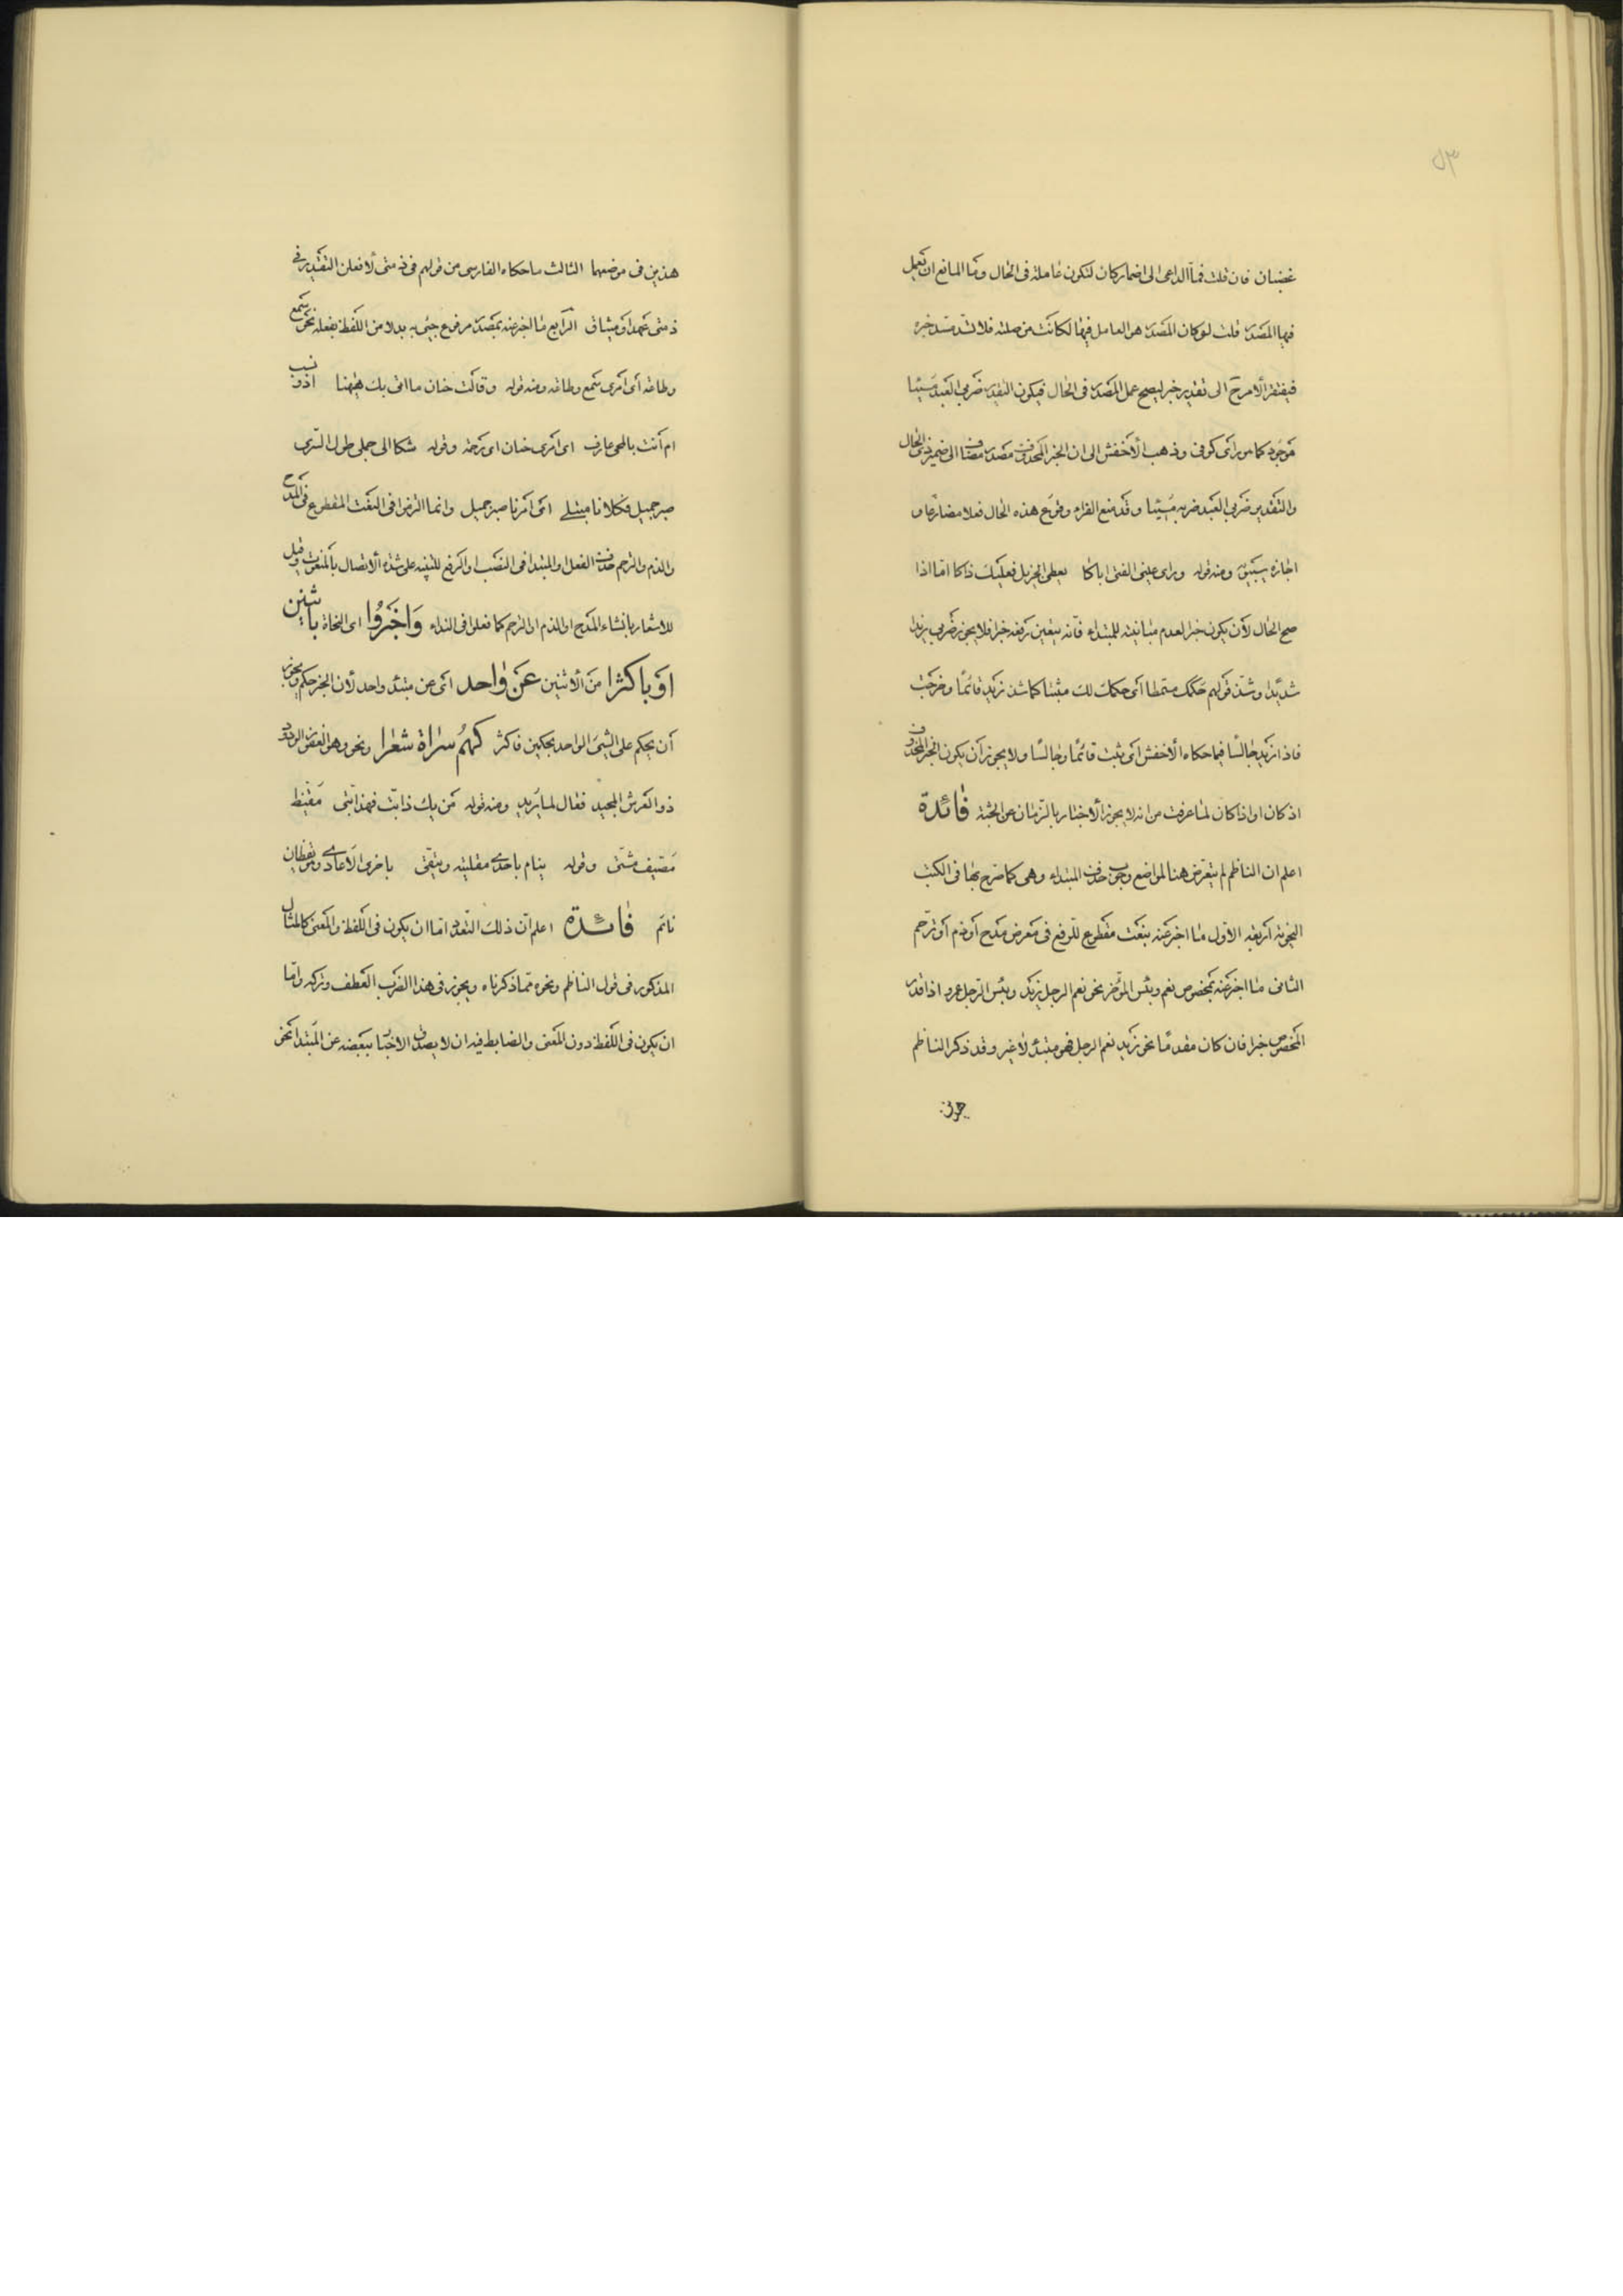 ٥٣
غضبان فان قلت فما الداعى الى اضمار كان لتكون عاملة فى الحال وما المانع ان يعمل
فيها المصدر قلت لو كان المصدر هو العامل فيها لكانت من صلته فلا تسد مسد خبره
فيفتقر الامر ح الى تقدير خبر ليصح عمل المصدر فى الحال فيكون التقدير ضربى العبد مسيئا
موجود كما هو رأى كوفى وذهب الأخفش الى ان الخبر المحذوف مصدر مضاف الى ضمير ذى الحال
والتقدير ضربى العبد ضربه مسيئا وقد منع الفراء وقوع هذه الحال فعلا مضارعا و
اجازه سيبويه ومنه قوله ورأى عينى الفتى اباكا يعطى الجزيل فعليك ذاكا اما اذا
صح الحال لأن يكون خبرا لعدم مباينته للمبتداء فانه يتعين رفعه خبرا فلا يجوز ضربى زيدا
شديدا وشذ قولهم حكمك مسمطا أى حكمك لك مثبتا كما شذ زيد قائما وخرجت
فاذا زيد جالسا فيما حكاه الأخفش أى ثبت قائما وجالسا ولا يجوز أن يكون الخبر المحذوف
اذ كان او اذا كان لما عرفت من انه لا يجوز الأخبار بالزمان عن الجثة فائدة
اعلم ان الناظم لم يتعرض هنا لمواضع وجوب حذف المبتداء وهى كما صرح بها فى الكتب
النحوية أربعة الأول ما اخبر عنه بنعت مقطوع للرفع فى معرض مدح أو ذم أو ترحم
الثانى ما اخبر عنه بمخصوص نعم وبئس المؤخر نحو نعم الرجل زيد وبئس الرجل عمرو اذا قدر
المخصوص خبرا فان كان مقدما نحو زيد نعم الرجل فهو مبتدأ لا غير وقد ذكر الناظم
هذين فى موضعهما الثالث ما حكاه الفارسى من قولهم فى ذمتى لأفعلن التقدير فى
ذمتى عهد او ميثاق الرابع ما اخبر عنه بمصدر مرفوع جئ به بدلا من اللفظ بفعله نحو سمع
وطاعة أى أمرى سمع وطاعة ومنه قوله وقالت حنان ما اتى بك ههنا اذو نسب
ام أنت بالحى عارف اى أمرى حنان اى رحمة وقوله شكا الى جملى طول السرى
صبر جميل فكلانا مبتلى أى أمرنا صبر جميل وانما التزموا فى النعت المقطوع فى المدح
والذم والترحم حذف الفعل والمبتدا فى النصب او الرفع للتنبيه على شدة الأتصال بالمنعوت وقيل
للاشعار بانشاء المدح او الذم او الترحم كما فعلوا فى النداء وَاخبَرُوا اى النحاة باثنين
اوَ باكثرا من الأثنين عَن واحد أى عن مبتدأ واحد لأن الخبر حكم ويجوز
أن يحكم على الشئ الواحد بحكمين فاكثر كهُم سراة شعرا ونحو وهو الغفور الودود
ذو العرش المجيد فعال لما يريد ومنه قوله من يك ذا بت فهذا بتى مقيظ
مصيف مشتى وقوله ينام باحدى مقلتيه ويتقى باخرى الأعادى وهو يقظان
نائم فائدة اعلم أن ذلك التعدد اما ان يكون فى اللفظ والمعنى كالمثال
المذكور فى قول الناظم ونحوه مما ذكرناه ويجوز فى هذا الضرب العطف وتركه واما
ان يكون فى اللفظ دون المعنى والضابط فيه ان لا يصدق الاخبار ببعضه عن المبتدا نحو